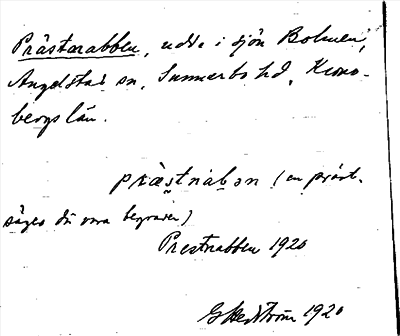 Prästnabben, udde i sjön Bolmen,
Angelstad sn, Sunnerbo hd, Krono-
bergs län.
præstnabən (en präst
säges där vara begraven)
Prestnabben 1920
G Hedström 1920